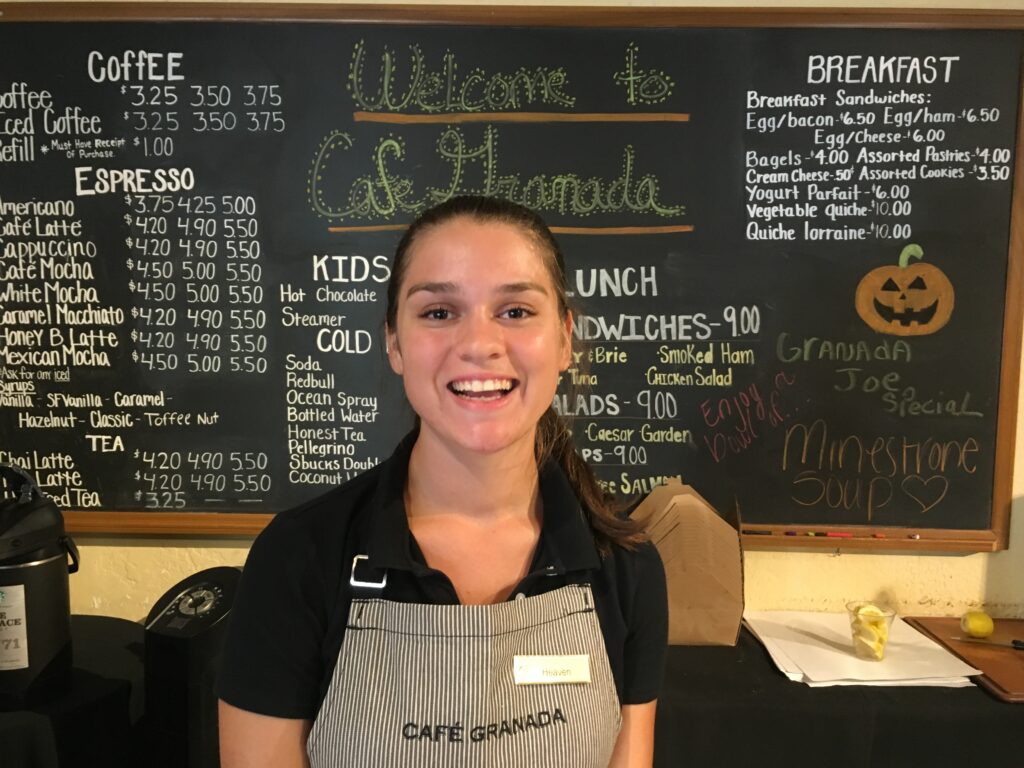 CoffEE
Coffee $3.25 3.50 3.75
Iced Coffee $3.25 3.50 3.75
Refill *Must Have Receipt Of Purchase. $1.00
ESPRESSO
Americano $3.75 4.25 5.00
Café Latte $4.20 4.90 5.50
Cappuccino $4.20 4.90 5.50
Café Mocha $4.50 5.00 5.50
White Mocha $4.50 5.00 5.50
Caramel Macchiato $4.20 4.90 5.50
Honey B Latte $4.20 4.90 5.50
Mexican Mocha $4.50 5.00 5.50
*Ask for any iced
Syrups
Vanilla - SF Vanilla - Caramel -
Hazelnut - Classic - Toffee Nut
TEA
Chai Latte $4.20 4.90 5.50
$4.20 4.90 5.50
Iced Tea $3.25
Welcome to
Café Granada
KIDS
Hot Chocolate
Steamer
COLD
Soda
Redbull
Ocean Spray
Bottled Water
Honest Tea
Pellegrino
Sbucks Doubl
Coconut
UNCH
NDWICHES-9.00
& Brie ·Smoked Ham
Tuna ·Chicken Salad
ALADS - 9.00
·Caesar Garden
PS-9.00
SALMON
BREAKFAST
Breakfast Sandwiches:
Egg/bacon-$6.50 Egg/ham-$6.50
Egg/Cheese-$6.00
Bagels-$4.00 Assorted Pastries-$4.00
Cream Cheese-50¢ Assorted Cookies-$3.50
Yogurt Parfait-$6.00
Vegetable Quiche-$10.00
Quiche lorraine-$10.00
GRANADA
Joe
Special
Enjoy a
bowl of...
Minestrone
Soup
Heaven
CAFÉ GRANADA
71